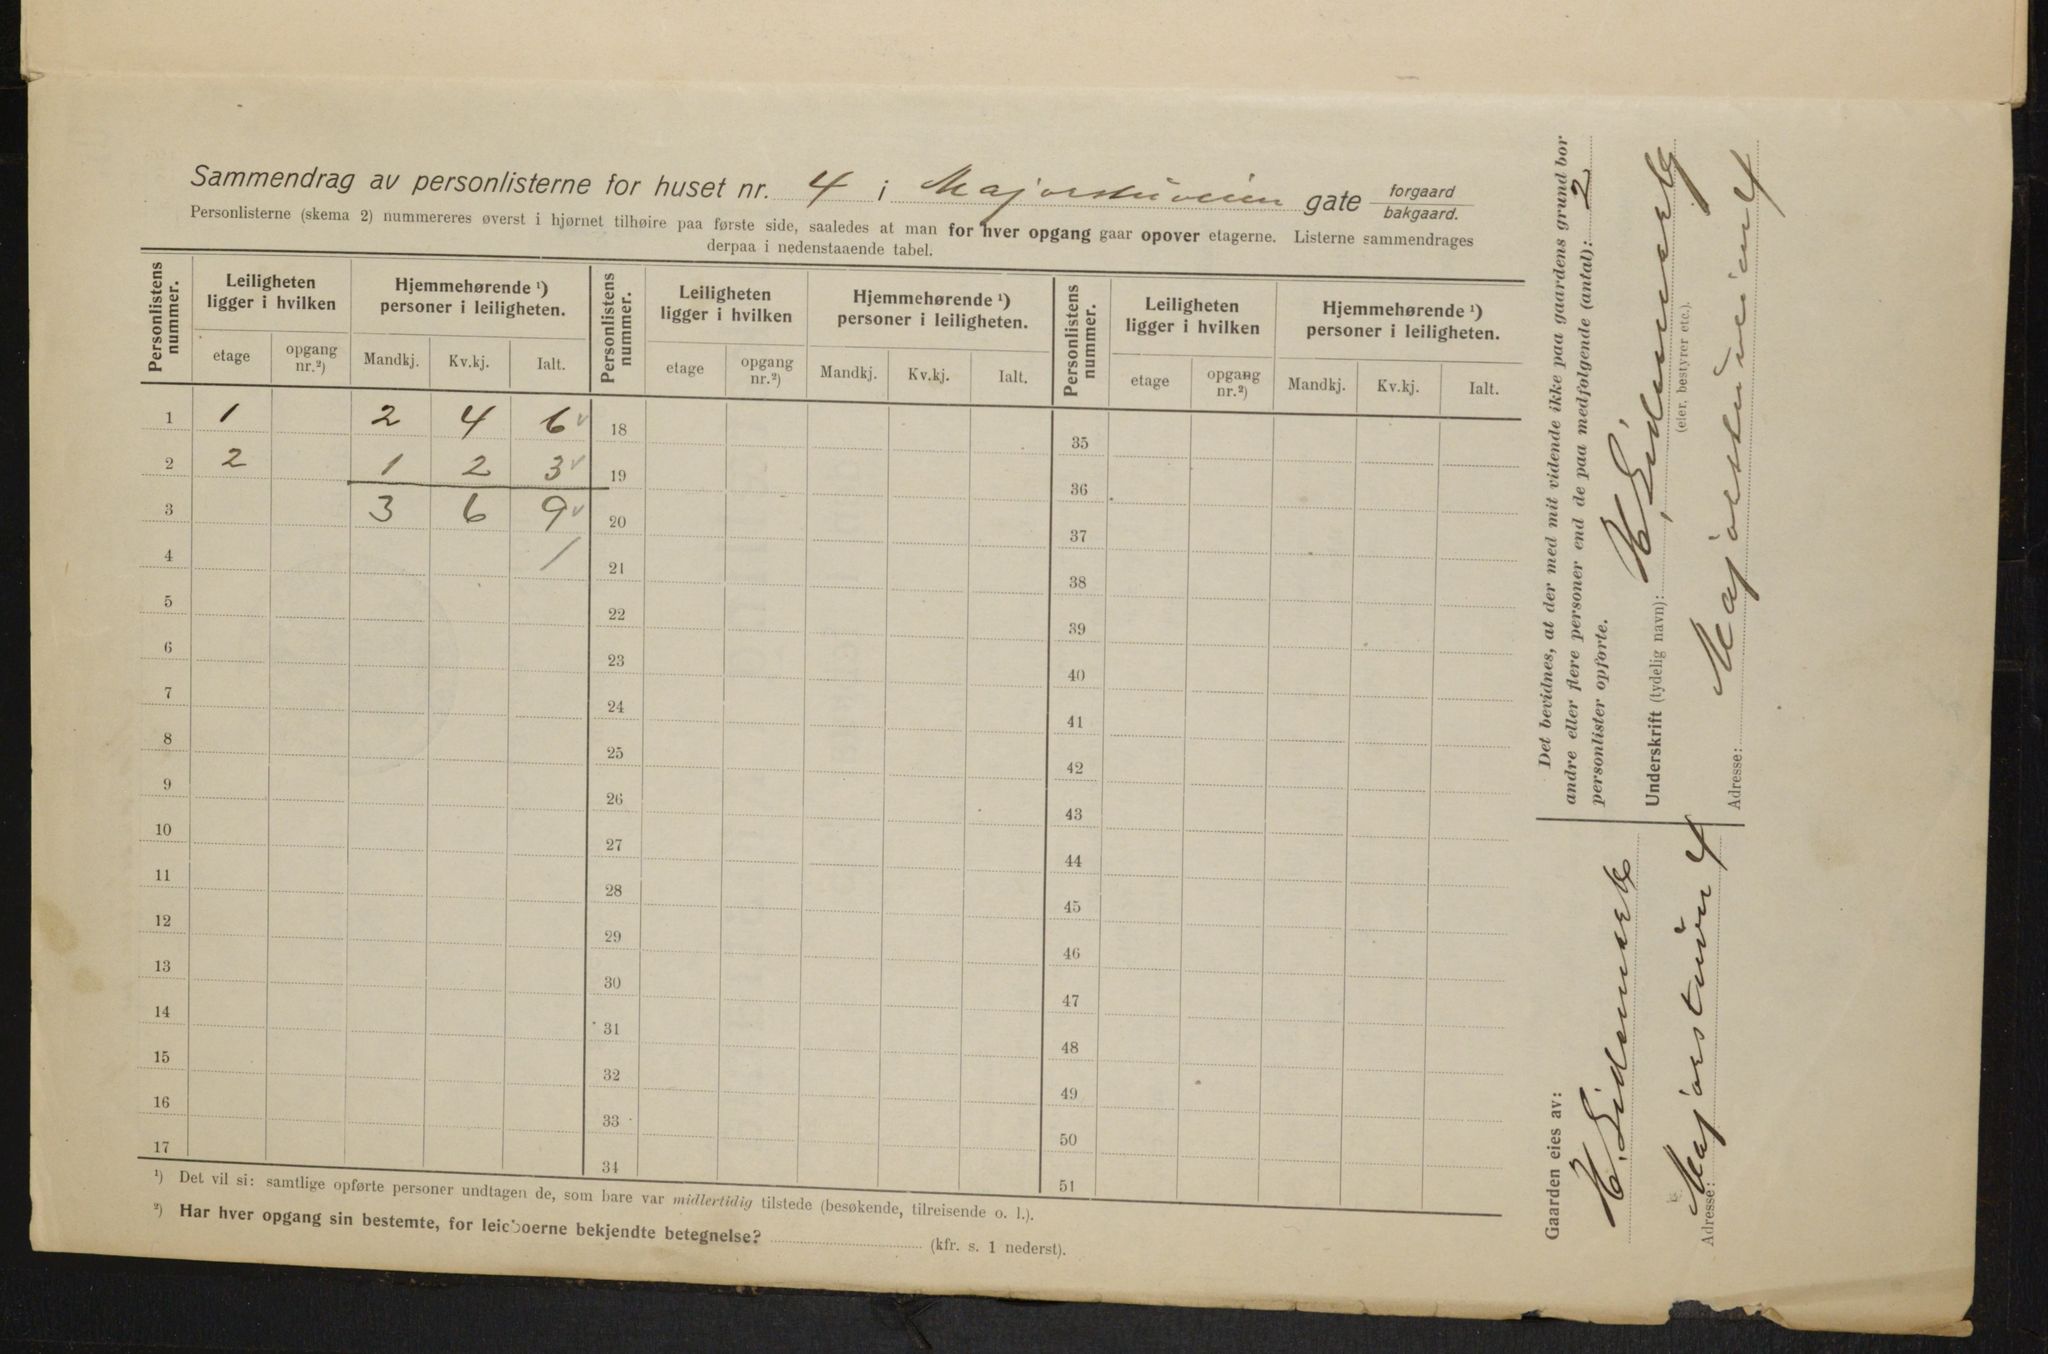 Sammendrag av personlisterne for huset nr. 4 i Majorstuveien gate forgaard bakgaard.
Personlisterne (skema 2) nummereres øverst i hjørnet tilhøire paa første side, saaledes at man for hver opgang gaar opover etagerne. Listerne sammendrages
derpaa i nedenstaaende tabel.
Personlistens nummer. Leiligheten ligger i hvilken Hjemmehørende ¹) personer i leiligheten. Personlistens nummer. Leiligheten ligger i hvilken Hjemmehørende ¹) personer i leiligheten. Personlistens nummer. Leiligheten ligger i hvilken Hjemmehørende ¹) personer i leiligheten.
etage opgang nr.²) Mandkj. Kv.kj. Ialt. etage opgang nr.²) Mandkj. Kv.kj. Ialt. etage opgang nr.²) Mandkj. Kv.kj. Ialt.
1 1 2 4 6 18 35
2 2 1 2 3 19 36
3 3 6 9 20 37
4 / 21 38
5 22 39
6 23 40
7 24 41
8 25 42
9 26 43
10 27 44
11 28 45
12 29 46
13 30 47
14 31 48
15 32 49
16 33 50
17 34 51
¹) Det vil si: samtlige opførte personer undtagen de, som bare var midlertidig tilstede (besøkende, tilreisende o. l.).
²) Har hver opgang sin bestemte, for leieboerne bekjendte betegnelse? (kfr. s. 1 nederst).
Det bevidnes, at der med mit vidende ikke paa gaardens grund bor
andre eller flere personer end de paa medfølgende (antal): 2
personlister opførte.
Underskrift (tydelig navn): H.
(eier, bestyrer etc.).
Adresse: Majorstuveien 4
Gaarden eies av:
H.
Adresse: Majorstuvn 4